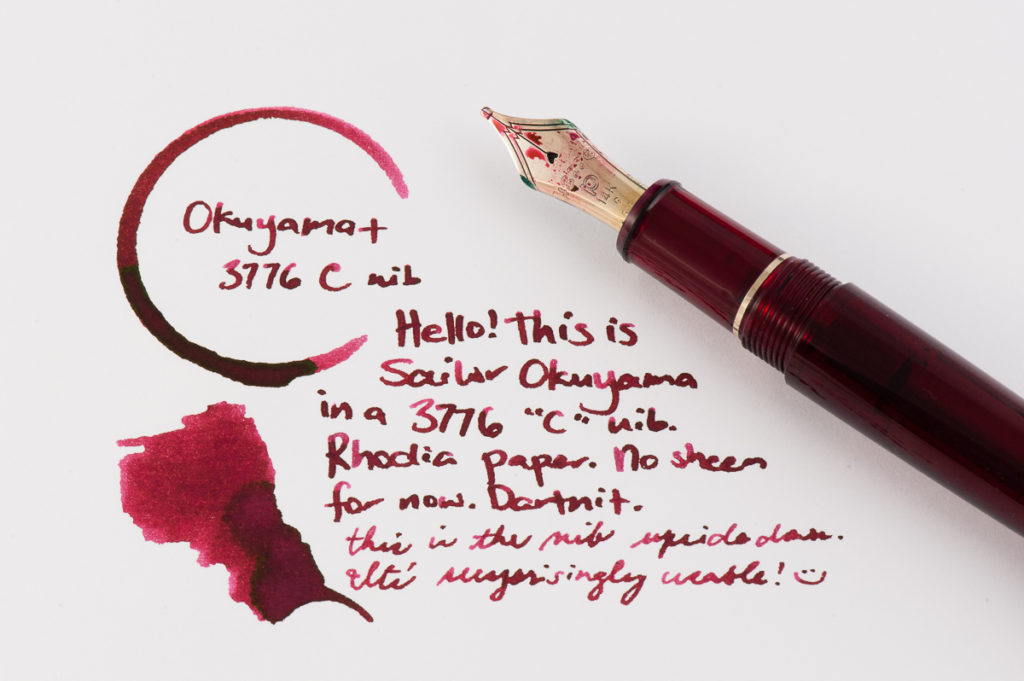 Okuyama +
3776 C nib
Hello! This is
Sailor Okuyama
in a 3776 "C" nib.
Rhodia paper. No sheen
for now. Dartnit.
this is the nib upside down.
surprisingly usable!
P
14K